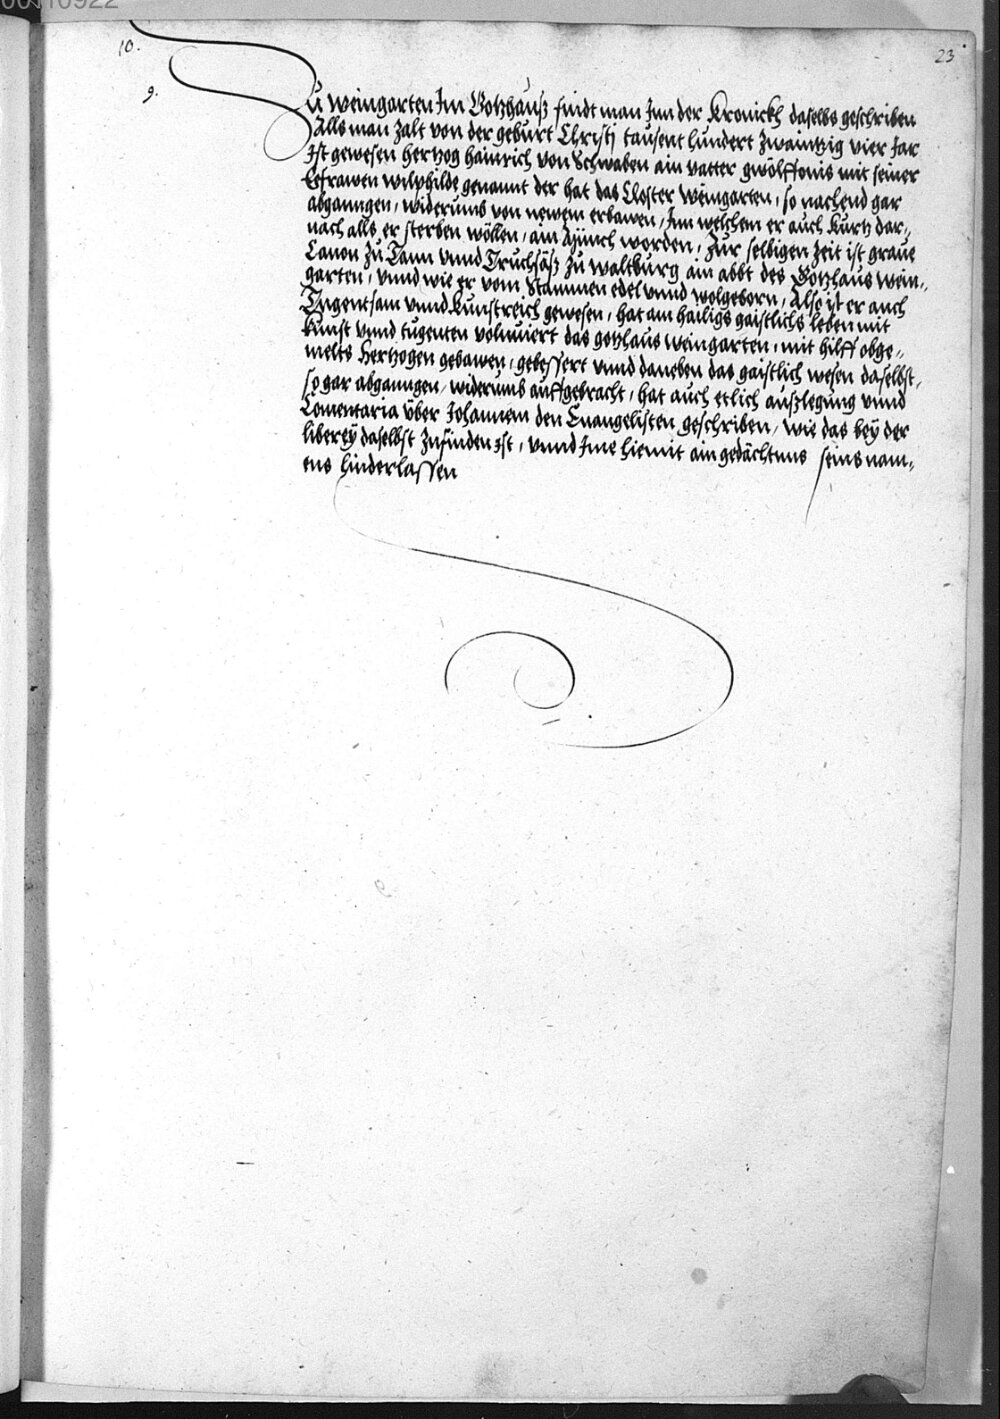 00110922
23
10.
9.
Zu Weingarten Jnn Gotzhauß findt man Jnn der Kronickh daselbs geschriben
Alls man Zalt von der geburt Christj tausent hundert Zwaintzig vier Jar
Jst gewesen hertzog hainrich von Schwaben ain vatter gwölffonis mit seiner
Eefrawen wilphilde genannt der hat das Closter Weingarten, so nachend gar
abganngen, widerumb von newem erbawen, Jnn welchem er auch Kurtz dar„
nach alls er sterben wöllen, ain Münch worden, Zur selbigen Zeit ist graue
Canon Zu Tann vnnd Truchsäß Zu Waltburg ain abbt des Gotzhaus Wein„
garten, vnnd wie er vom Stammen edel vnnd wolgeborn, Also ist er auch
Tugentsam vnnd Kunstreich gewesen, hat am hailigs gaistlichs leben mit
Kunst vnnd tugenten volnuiert das gotzhaus Weingarten, mit hilff obge„
melts Hertzogen gebawen, gebessert vnnd daneben das gaistlich wesen daselbst,
so gar abganngen, widerumb auffgebracht, hat auch etlich außlegung vnnd
Comentaria über Johannem den Euangelisten geschriben, wie das bey der
liberey daselbst Zufinden ist, vnnd Jme hiemit ain gedächtnus seins nam„
ens hinderlassen